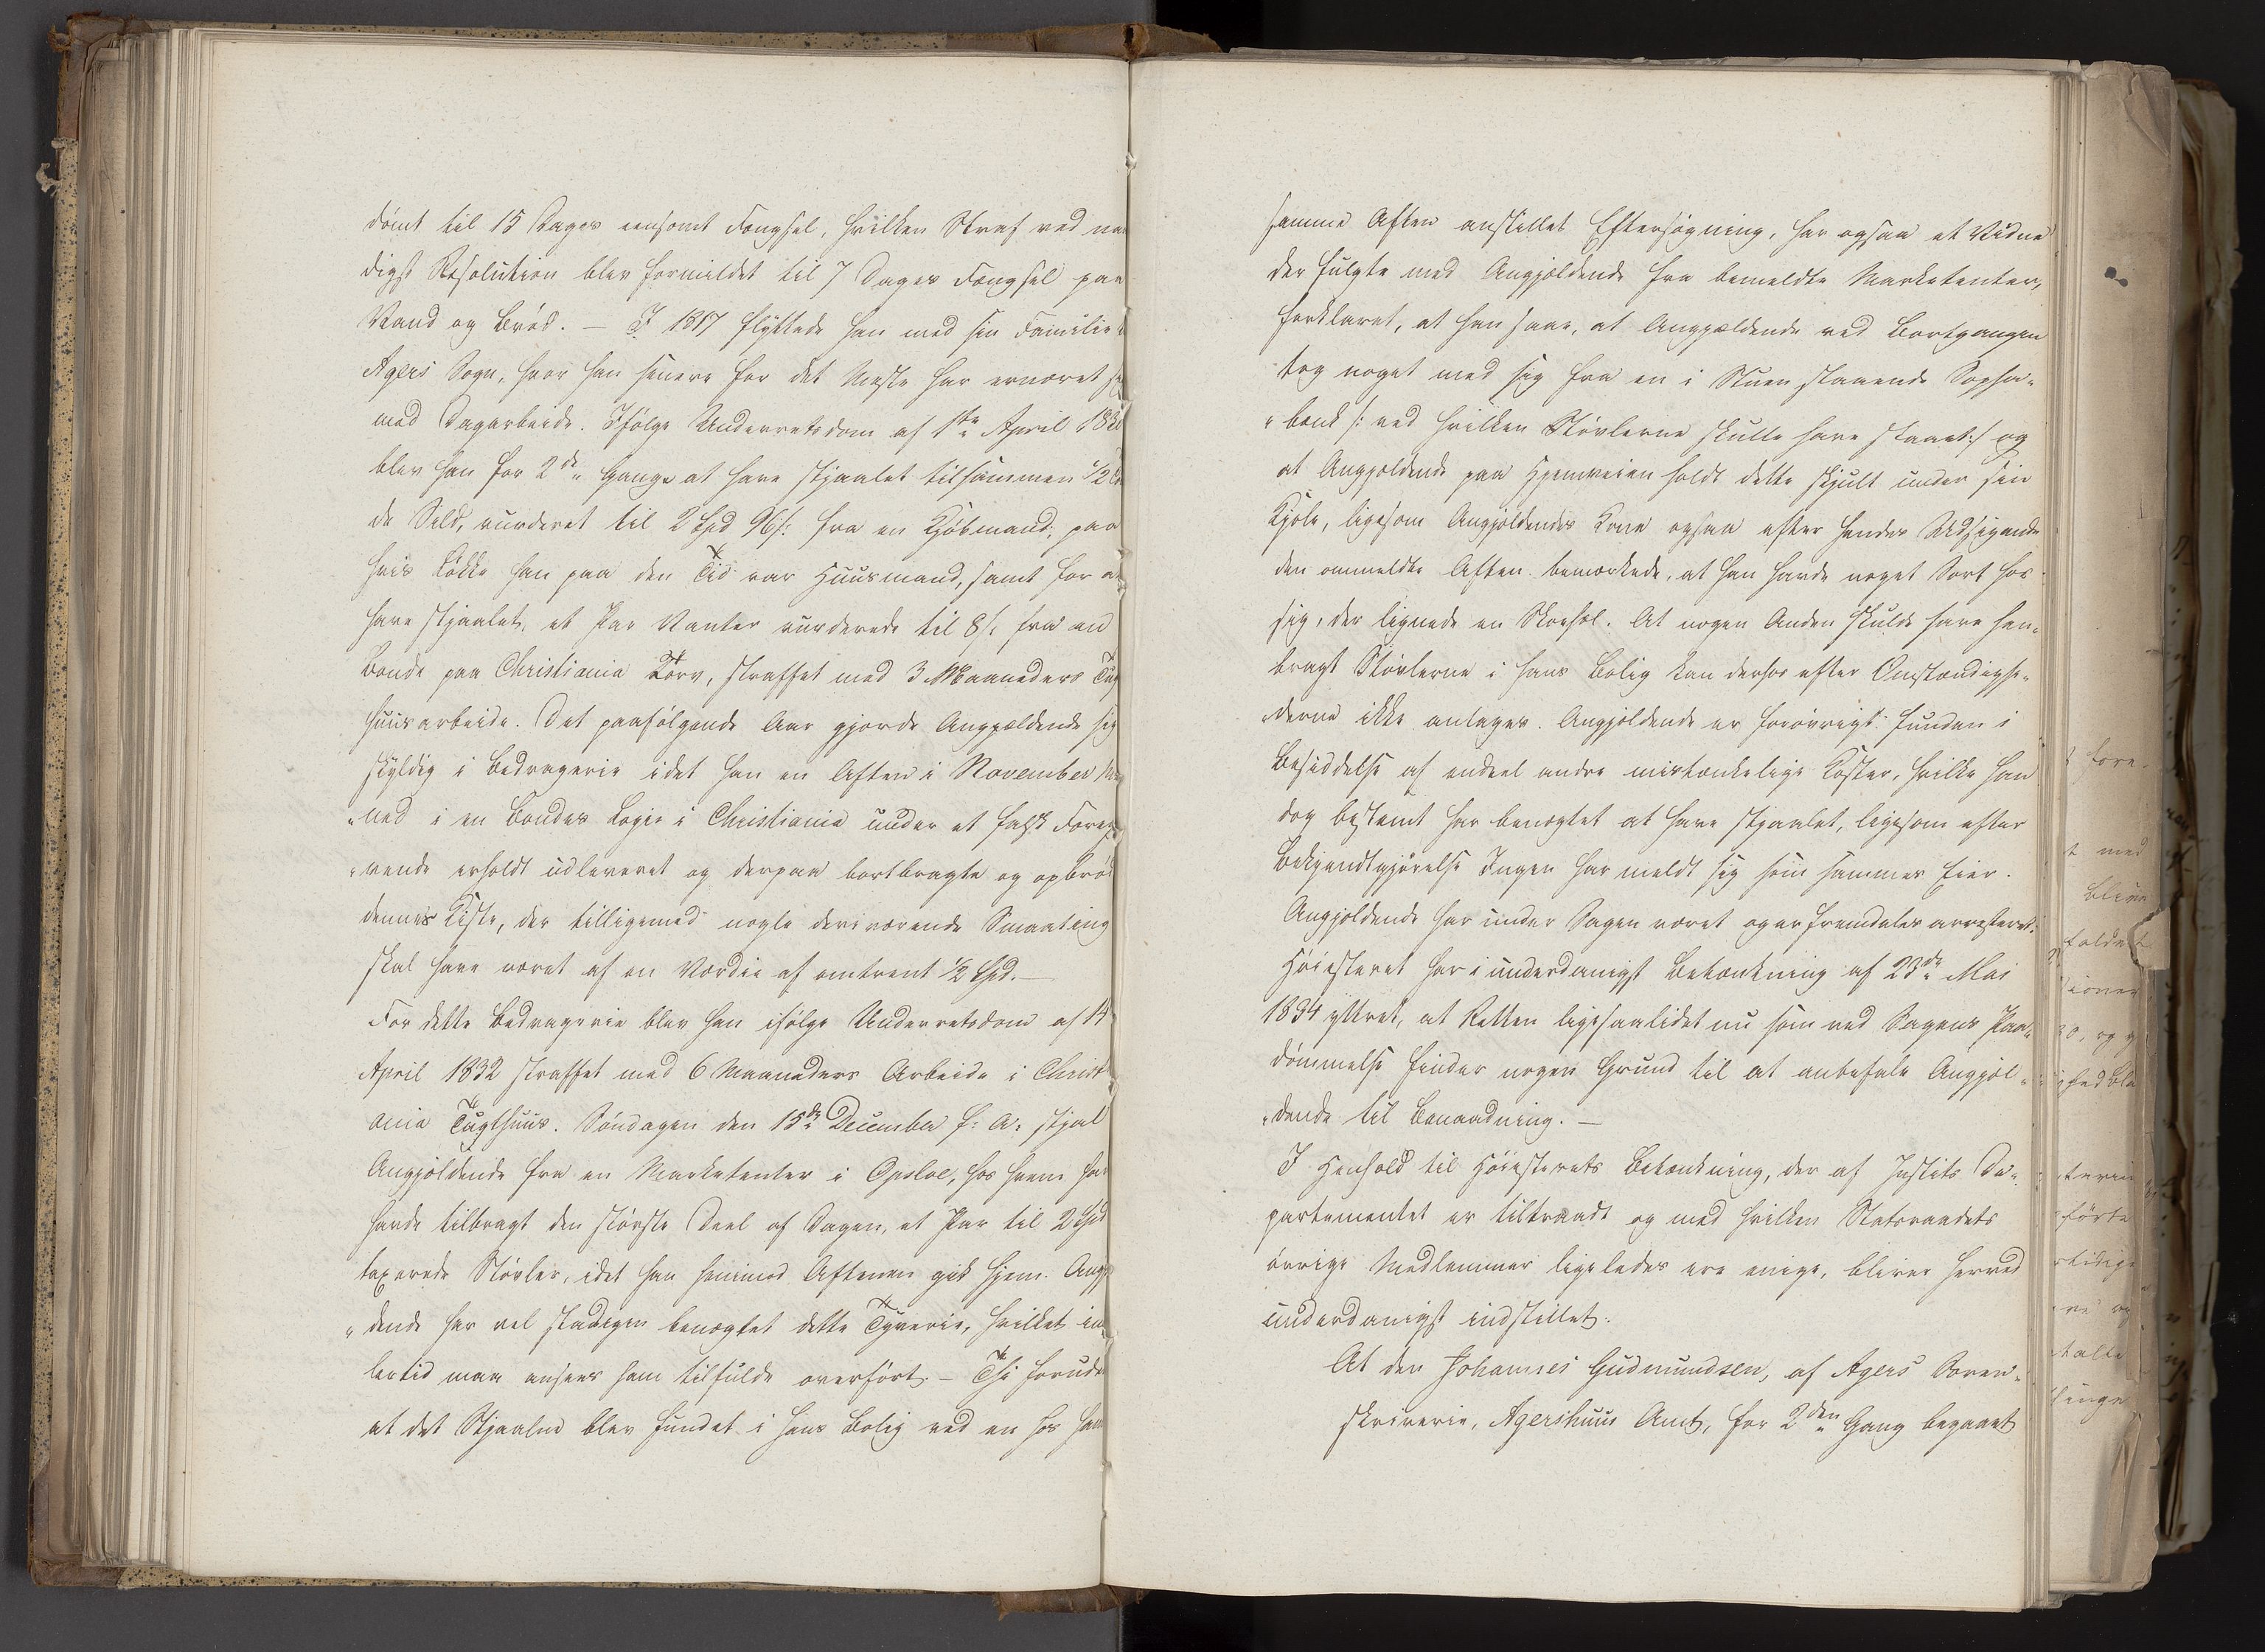 dömt til 15 Dages eensomt Fængsel, hvilken Straf ved naa
digst Resolution blev formildet til 7 Dages Fængsel paa
Vand og Bröd. — I 1817 flyttede han med sin Familie
Agers Sogn, hvor han senere for det Meste har ernæret sig
med Dagarbeide. Ifölge Underretsdom af 1ste April 183
blev han for 2de Gange at have stjaalet tilsammen 1/2
de Sild, vurderet til 2 Spd 96 s: fra en Kjöbmand, paa
hvis Lökke han paa den Tid var Huusmand, samt for at
have stjaalet, et Par Vanter vurderede til 8 s: fra en
Bonde paa Christiania Torv, straffet med 3 Maaneders Tug
huusarbeide. Det paafölgende Aar gjorde Angjældende sig
skyldig i Bedragerie idet han en Aften i November Maa
"ned i en Bondes Logie i Christiania under et falsk Foregi
"vende erholdt udleveret og derpaa bortbragte og opbröd
dennes Kiste, der tilligemed nogle deri værende Smaating
skal have været af en Værdie af omtrent 1/2 Spd. —
For dette Bedragerie blev han ifölge Underretsdom af 14
April 1832 straffet med 6 Maaneders Arbeide i Christi
ania Tugthuus. Söndagen den 15de December f: A: stjal
Angjældende fra en Marketenter i Opsloe, hos hvem han
havde tilbragt den störste Deel af Dagen, et Par til 2 Spd
taxerede Stövler, idet han henimod Aftenen gik hjem. Angjæl
"dende har vel stadigen benægtet dette Tyverie, hvilket im
lertid maa ansees ham tilfulde overfört. — Thi foruden
at det Stjaalne blev fundet i hans Bolig ved en hos ham
samme Aften anstillet Eftersögning, har ogsaa et Vidne
der fulgte med Angjældende fra bemeldte Marketenter,
forklaret, at han saae, at Angjældende ved Bortgangen
tog noget med sig fra en i Stuen staaende Sopha-
"bænk /: ved hvilken Stövlerne skulle have staaet :/ og
at Angjældende paa Hjemveien holdt dette skjult under sin
Kjole, ligesom Angjældendes Kone ogsaa efter hendes Udsigende
den ommeldte Aften bemærkede, at han havde noget Sort hos
sig, der lignede en Skoehæl. At nogen Anden skulde have hen-
bragt Stövlerne i hans Bolig kan derhos efter Omstændighe-
"derne ikke antages. Angjældende er forövrigt funden i
Besiddelse af endeel andre mistænkelige Koster, hvilke han
dog bestemt har benægtet at have stjaalet, ligesom efter
Bekjendtgjörelse Ingen har meldt sig som sammes Eier.
Angjældende har under Sagen været og er fremdeles arresteret.
Höiesteret har i underdanigst Betænkning af 23de Mai
1834 yttret, at Retten ligesaalidet nu som ved Sagens Paa-
dömmelse finder nogen Grund til at anbefale Angjæl-
"dende til Benaadning. —
I Henhold til Höiesterets Betænkning, der af Justits De-
partementet er tiltraadt og med hvilken Statsraadets
övrige Medlemmer ligeledes ere enige, bliver herved
underdanigst indstillet:
At den Johannes Gudmundsen, af Agers Soren-
skriverie, Agershuus Amt, for 2den Gang begaaet